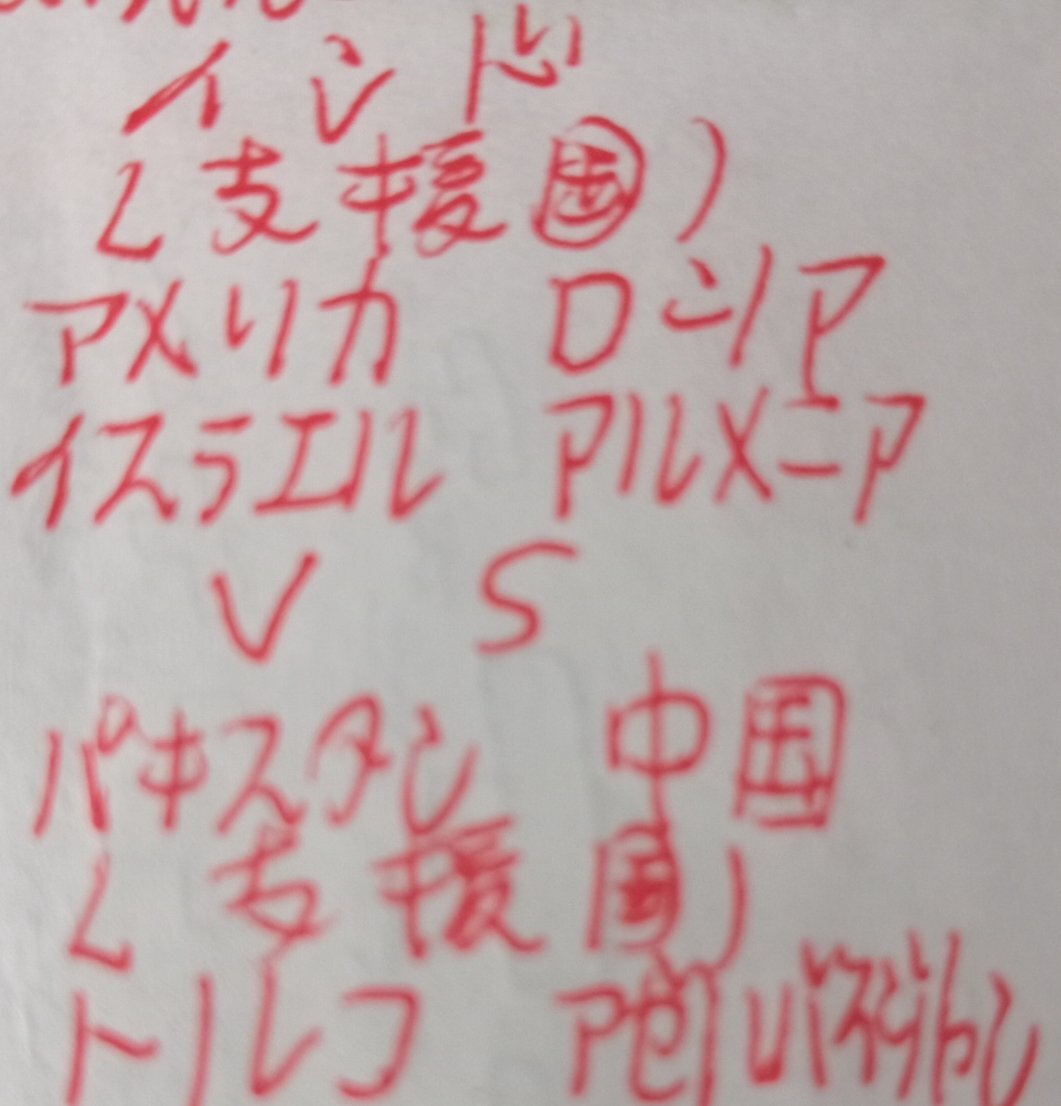 インド
(支援国)
アメリカ ロシア
イスラエル アルメニア
VS
パキスタン 中国
(支援国)
トルコ アゼルバイジャン